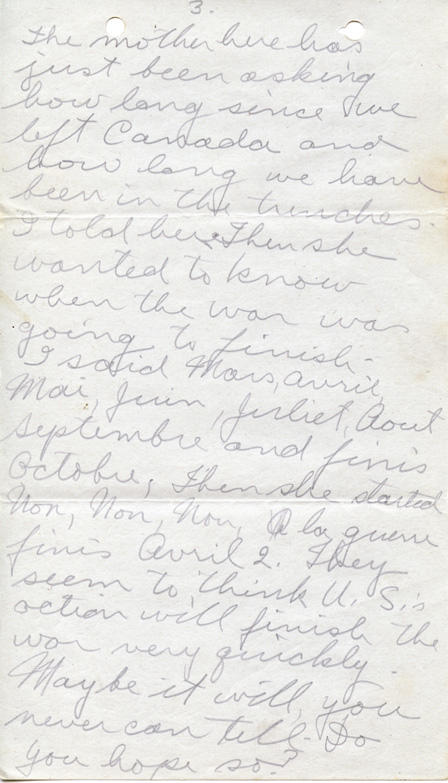 3.
The mother here has
just been asking
how long since we
left Canada and
how long we have
been in the trenches.
I told her. Then she
wanted to know
when the war was
going to finish.
I said Mars, avril,
Mai, Juin, Juliet, Aout
Septembre and finis
Octobre, Then she started
Non, Non, Non, la guerre
finis Avril 2. They
seem to think U.S.'s
action will finish the
war very quickly.
Maybe it will, you
never can tell. Do
you hope so?